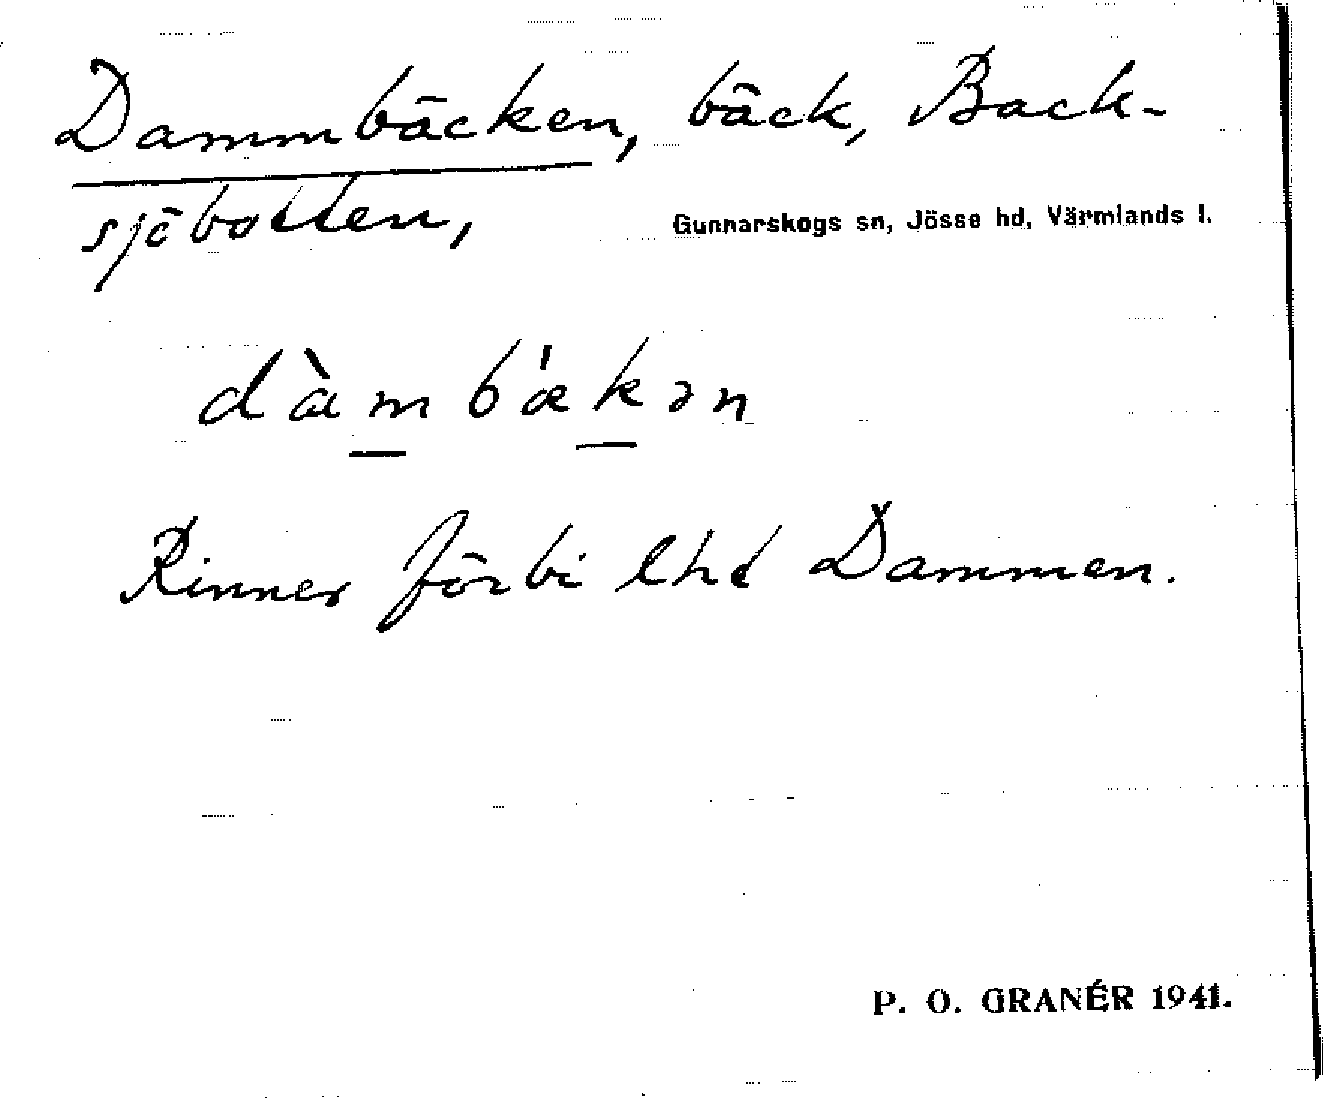 Dammbäcken, bäck, Back-
sjöbotten,
Gunnarskogs sn, Jösse hd, Värmlands l.
dàmbǽkən
Rinner förbi lhd Dammen.
P. O. GRANÉR 1941.